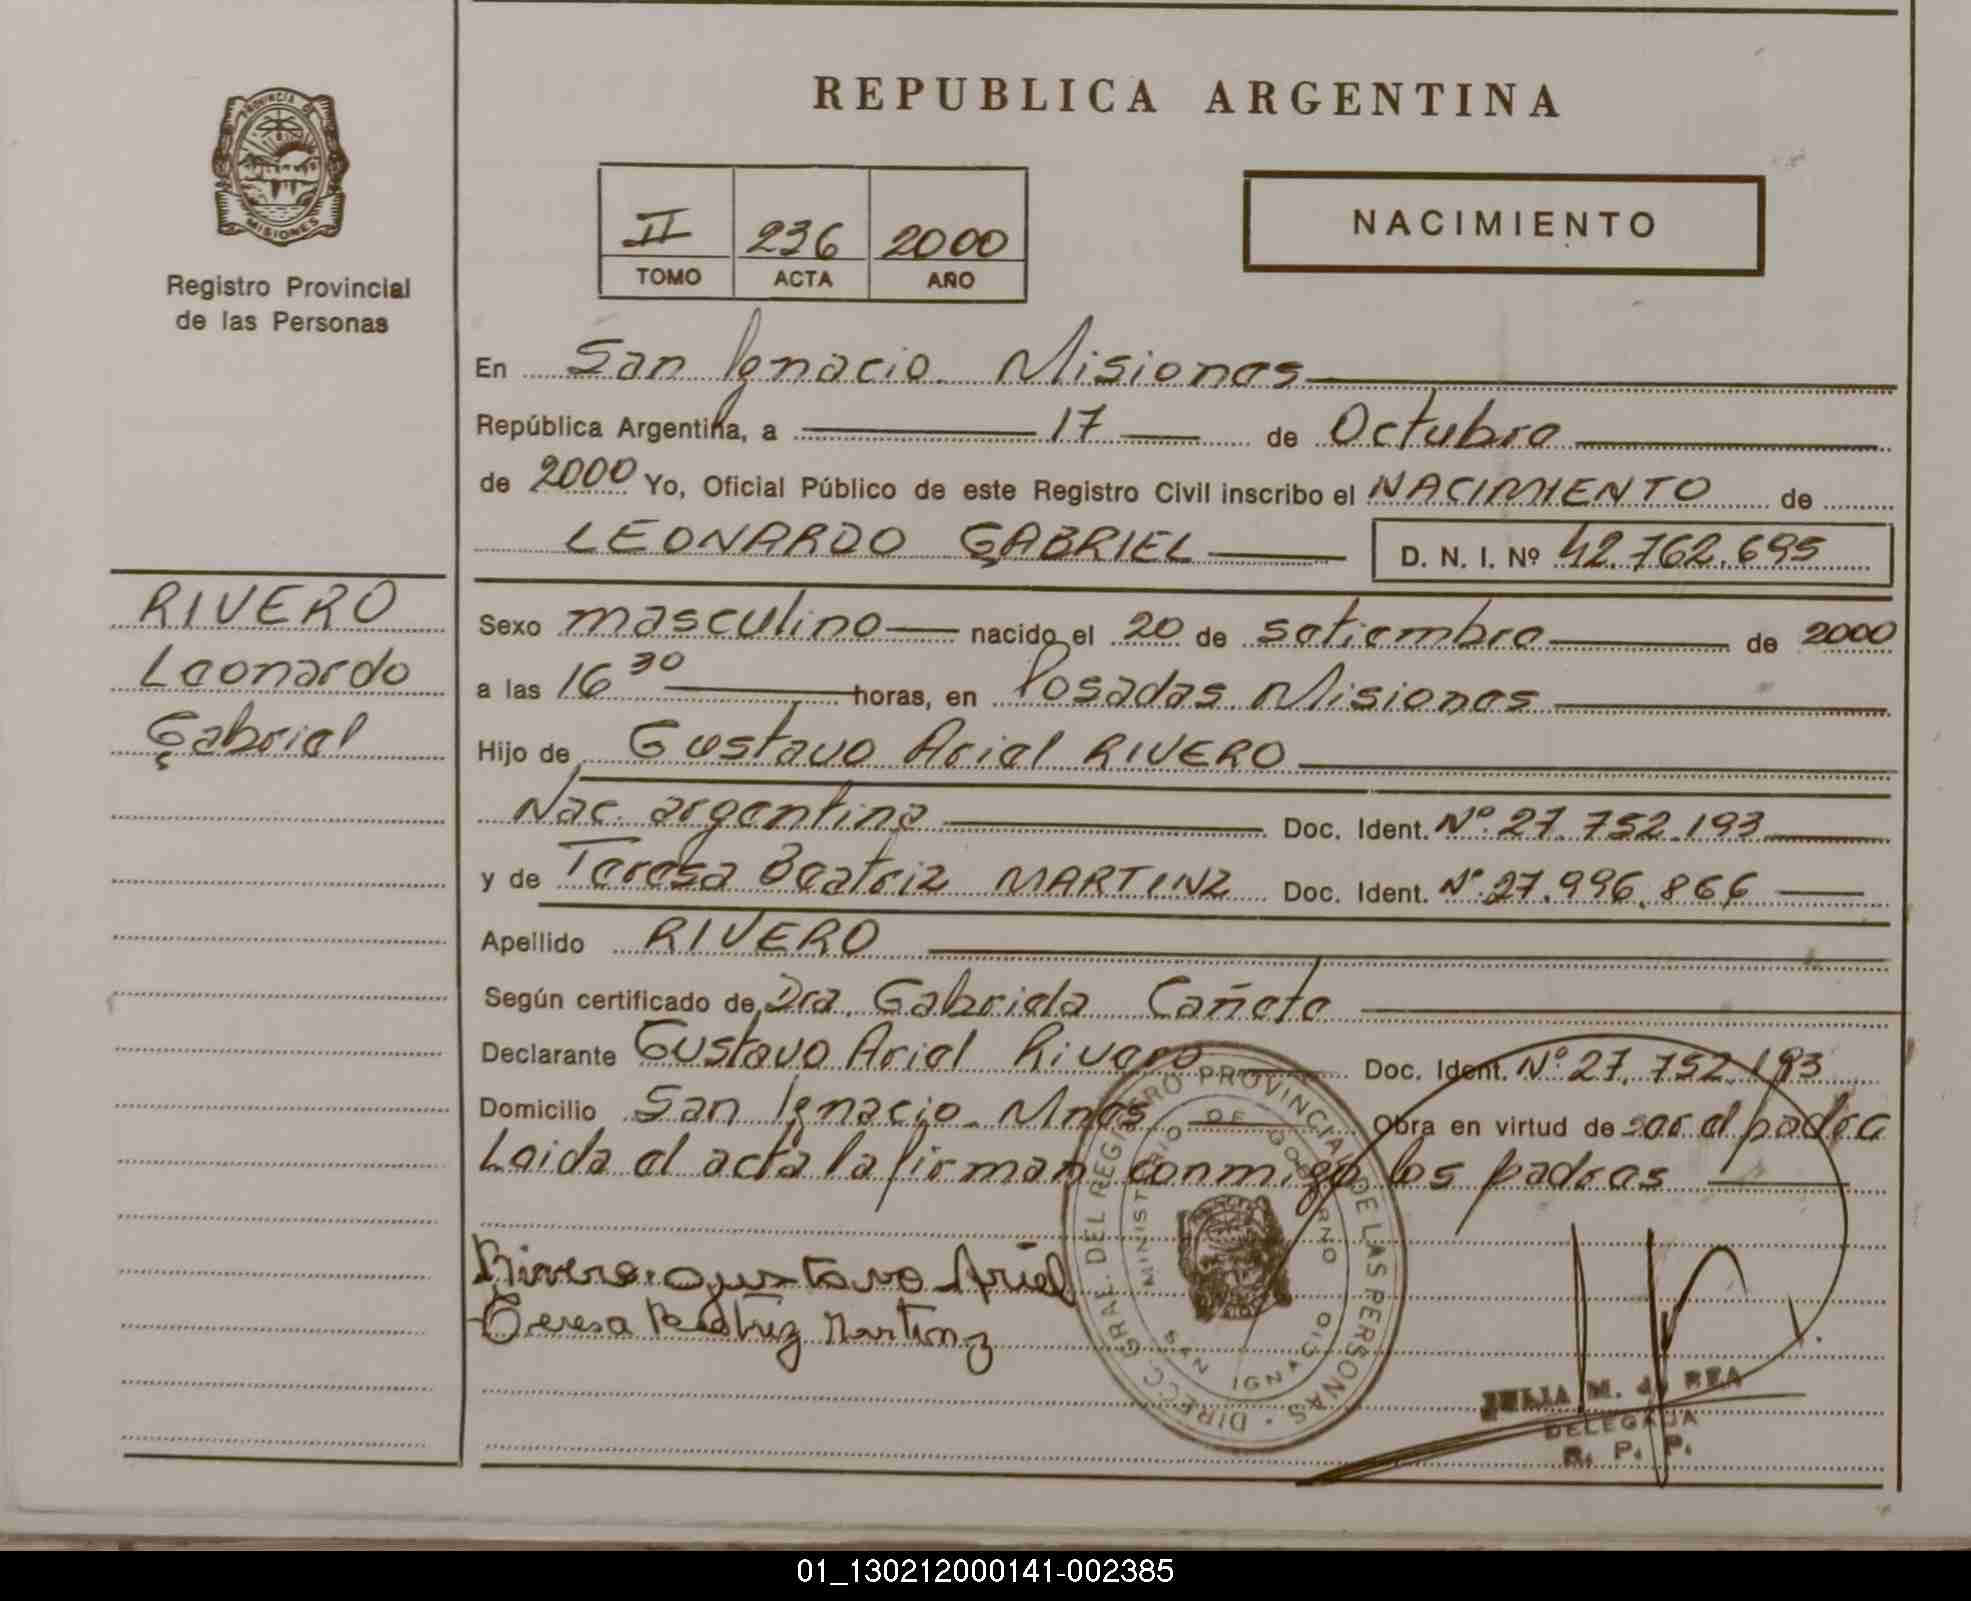 REPUBLICA ARGENTINA
PROVINCIA DE
MISIONES
Registro Provincial
de las Personas
II 236 2000
TOMO ACTA AÑO
NACIMIENTO
En San Ignacio Misiones
República Argentina, a 17 de Octubre
de 2000 Yo, Oficial Público de este Registro Civil inscribo el NACIMIENTO de
LEONARDO GABRIEL D. N. I. Nº 42.762.695
RIVERO
Leonardo
Gabriel
Sexo masculino nacido el 20 de setiembre de 2000
a las 16 30 horas, en Posadas Misiones
Hijo de Gustavo Ariel RIVERO
Nac. argentina Doc. Ident. Nº 27.752.193
y de Teresa Beatriz MARTINZ Doc. Ident. Nº 27.996.866
Apellido RIVERO
Según certificado de Dra. Gabriela Cañete
Declarante Gustavo Ariel Rivero Doc. Ident. Nº 27.752.193
Domicilio San Ignacio Mnes Obra en virtud de ser el padre
Leida el acta la firman conmigo los padres
Rivero Gustavo Ariel
Teresa Beatriz Martinz
DIRECC. GRAL. DEL REGISTRO PROVINCIAL DE LAS PERSONAS
MINISTERIO DE GOBIERNO
SAN IGNACIO
JULIA M. de REA
DELEGADA
R. P. P.
01_130212000141-002385